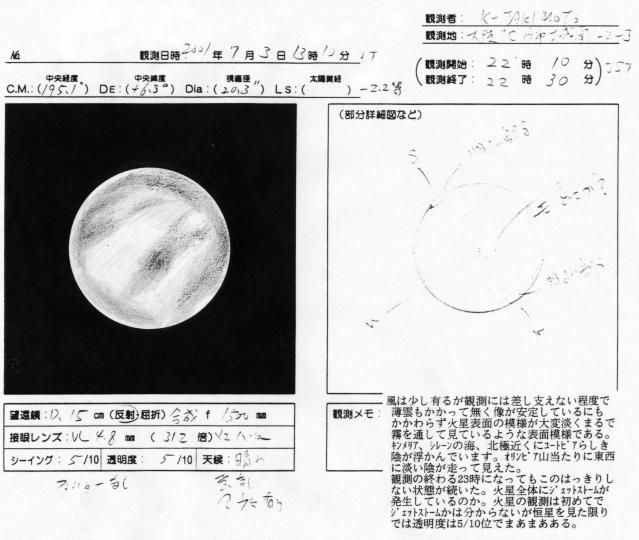 観測者: K-TAKIMOTO
観測地:
No.
観測日時 2001年 7月 3日 13時 10分 UT
観測開始: 22時 10分
観測終了: 22時 30分
JST
中央経度 中央緯度 視直径 太陽黄経
C.M.:(195.1°) DE:(+6.3°) Dia:(20.3") Ls:( ) -2.2等
(部分詳細図など)
S
明るい部分
明るい部分
N
望遠鏡:D. 15cm (反射・屈折) f 1500 mm
接眼レンズ:VL 4.8 mm (312倍)
シーイング:5/10 透明度:5/10 天候:晴れ
観測メモ:
風は少し有るが観測には差し支えない程度で
薄雲もかかって無く像が安定しているにも
かかわらず火星表面の模様が大変淡くまるで
霧を通して見ているような表面模様である。
キンメリア、シレーンの海、北極近くにユートピアらしき
陰が浮かんでいます。オリンピア山当たりに東西
に淡い陰が走って見えた。
観測の終わる23時になってもこのはっきりし
ない状態が続いた。火星全体にジェットストームが
発生しているのか。火星の観測は初めてで
ジェットストームかは分からないが恒星を見た限り
では透明度は5/10位でまあまあある。